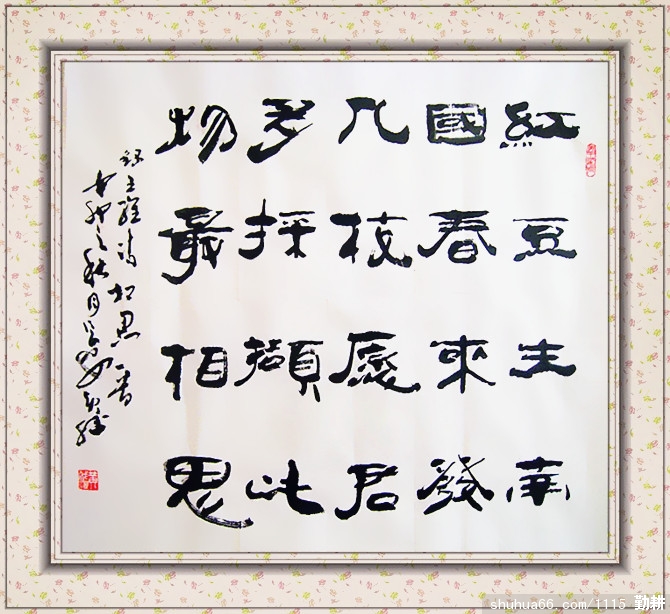 紅豆生南
國春來發
几枝愿君
多採擷此
物最相思
錄王維詩相思一首
之秋月
shuhua66.com/1115 勤耕